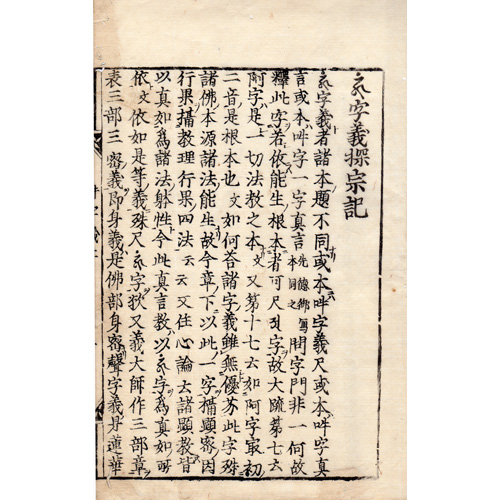 字義探宗記
字義者諸本題不同或本吽字義尺或本吽字真
言或本吽字一字真言先德御寫本同之開字門非一何故
釋此字若依能生根本者可尺字故大疏第七云
阿字是一切法教之本文又第十七云如阿字最初
二音是根本也文如何荅諸字義雖無優劣此字殊
諸佛本源諸法能生故今章下以此一字攝顯密因
行果攝教理行果四法云云又住心論云諸顯教皆
以真如爲諸法躰性今此真言教以字爲真如所
依文依如是等義殊尺字歟又義大師作三部章
表三部三密義即身義是佛部身密聲字義是蓮華